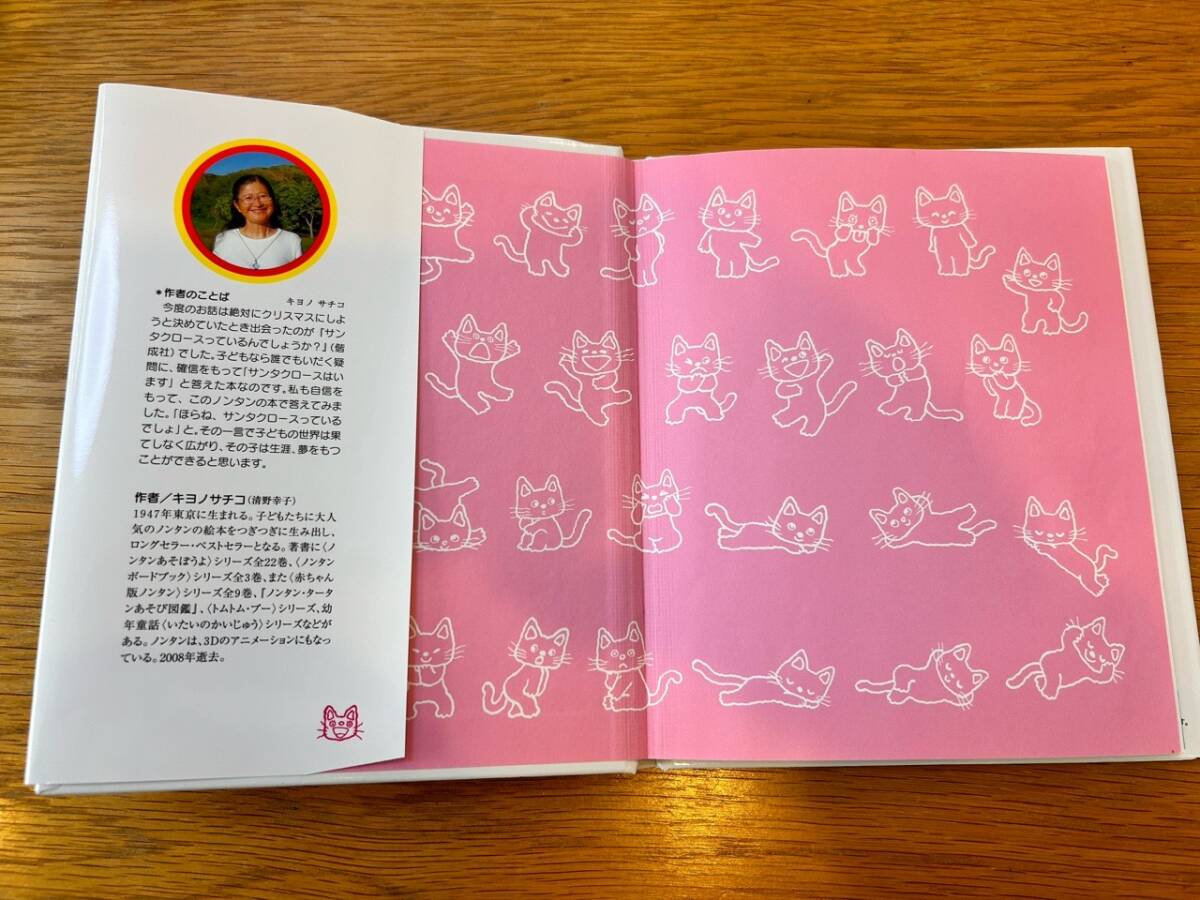 *作者のことば
キヨノ サチコ
今度のお話は絶対にクリスマスにしよ
うと決めていたとき出会ったのが『サン
タクロースっているんでしょうか?』(偕
成社)でした。子どもなら誰でもいだく疑
問に、確信をもって「サンタクロースはい
ます」と答えた本なのです。私も自信を
もって、このノンタンの本で答えてみま
した。「ほらね、サンタクロースっている
でしょ」と。その一言で子どもの世界は果
てしなく広がり、その子は生涯、夢をもつ
ことができると思います。
作者/キヨノサチコ(清野幸子)
1947年東京に生まれる。子どもたちに大人
気のノンタンの絵本をつぎつぎに生み出し、
ロングセラー・ベストセラーとなる。著書に〈ノ
ンタンあそぼうよ〉シリーズ全22巻、〈ノンタン
ボードブック〉シリーズ全3巻、また〈赤ちゃん
版ノンタン〉シリーズ全9巻、『ノンタン・タータ
ンあそび図鑑』、〈トムトム・ブー〉シリーズ、幼
年童話〈いたいのかいじゅう〉シリーズなどが
ある。ノンタンは、3Dのアニメーションにもなっ
ている。2008年逝去。
す。